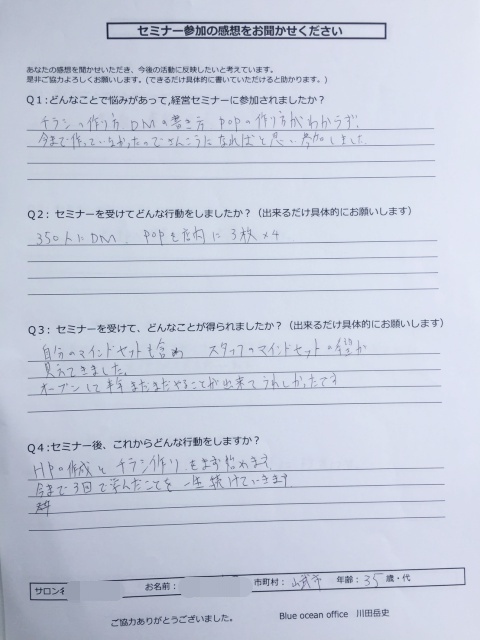 セミナー参加の感想をお聞かせください
あなたの感想を聞かせいただき、今後の活動に反映したいと考えています。
是非ご協力よろしくお願いします。(できるだけ具体的に書いていただけると助かります。)
Q1:どんなことで悩みがあって,経営セミナーに参加されましたか？
チラシの作り方 DMの書き方 POPの作り方がわからず、
今まで作っていなかったのでさんこうになればと思い参加しました
Q2： セミナーを受けてどんな行動をしましたか？（出来るだけ具体的にお願いします）
350人にDM、 POPを店内に3枚×4
Q3： セミナーを受けて、どんなことが得られましたか？（出来るだけ具体的にお願いします）
自分のマインドセットも含め スタッフのマインドセットの
見えてきました。
オープンして半年まだまだやることが出来てうれしかったです
Q4:セミナー後、これからどんな行動をしますか？
HPの作成とチラシ作り をまず始めます
今まで3回で学んだことを一生続けていきます
サロン名 お名前： 市町村： 山武市 年齢： 35 歳・代
ご協力ありがとうございました。 Blue ocean office 川田岳史